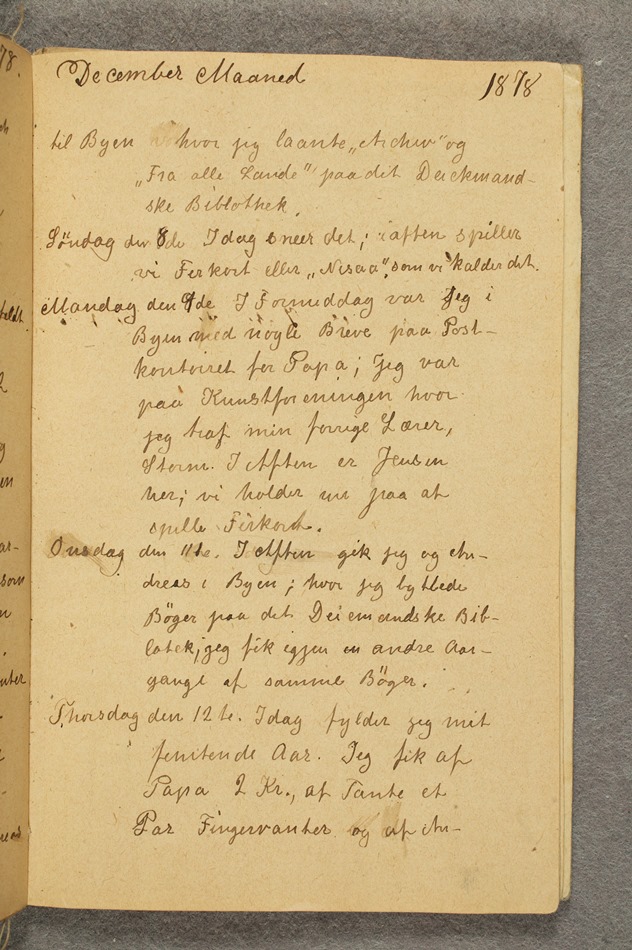 December Maaned 1878
til Byen hvor jeg laante „Archiv" og
„Fra alle Lande" paa det Deickmand-
ske Biblothek.
Söndag den 8de Idag sneer det; iaften spiller
vi Firkort eller „Nisaa", som vi kalder det.
Mandag den 9de I Formiddag var jeg i
Byen med nogle Breve paa Post-
kontoiret for Papa; jeg var
paa Kunstforeningen hvor
jeg traf min forrige Lærer,
Storm. I Aften er Jensen
her; vi holder nu paa at
spille Firkort.
Onsdag den 11te. I Aften gik jeg og An-
dreas i Byen; hvor jeg byttede
Böger paa det Deiemandske Bib-
latek; jeg fik igjen en andre Aar-
gange af samme Böger.
Thorsdag den 12te. Idag fylder jeg mit
femtende Aar. Jeg fik af
Papa 2 Kr., af Tante et
Par Fingervanter og af An-